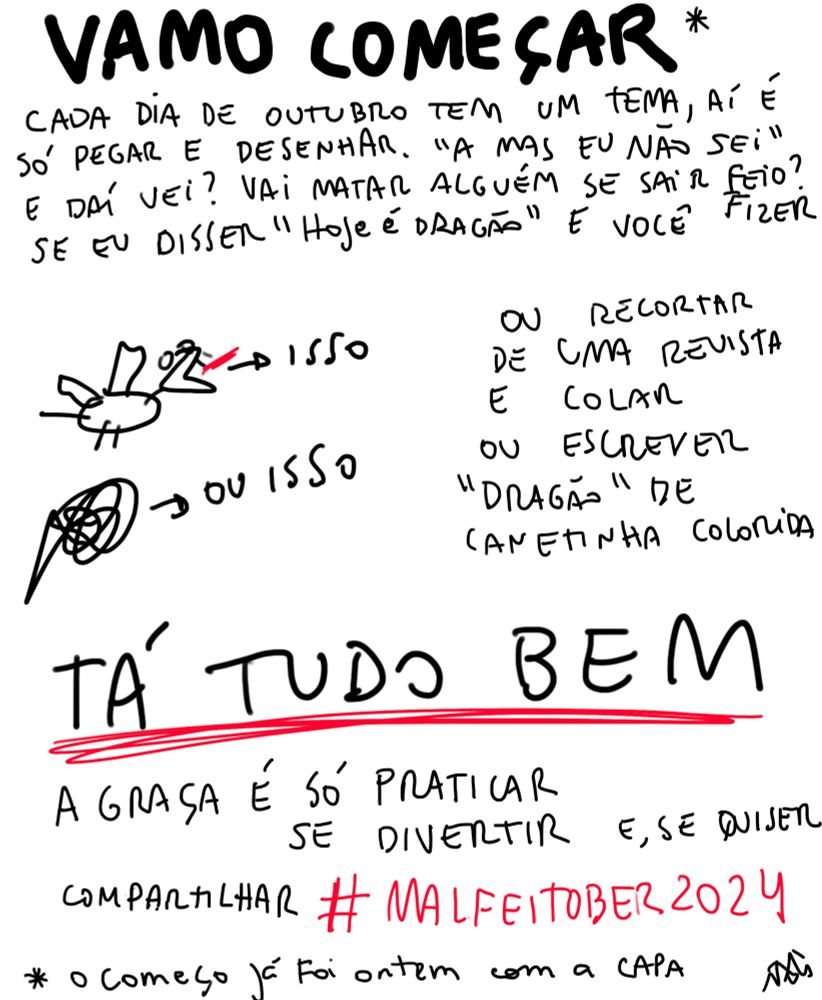 VAMO COMEÇAR*
CADA DIA DE OUTUBRO TEM UM TEMA, AÍ É
SÓ PEGAR E DESENHAR. "A MAS EU NÃO SEI"
E DAÍ VEI? VAI MATAR ALGUÉM SE SAIR FEIO?
SE EU DISSER "HOJE É DRAGÃO" E VOCÊ FIZER
ISSO
OU ISSO
OU RECORTAR
DE UMA REVISTA
E COLAR
OU ESCREVER
"DRAGÃO" DE
CANETINHA COLORIDA
TÁ TUDO BEM
A GRAÇA É SÓ PRATICAR
SE DIVERTIR E, SE QUISER
COMPARTILHAR #MALFEITOBER2024
* O COMEÇO JÁ FOI ONTEM COM A CAPA